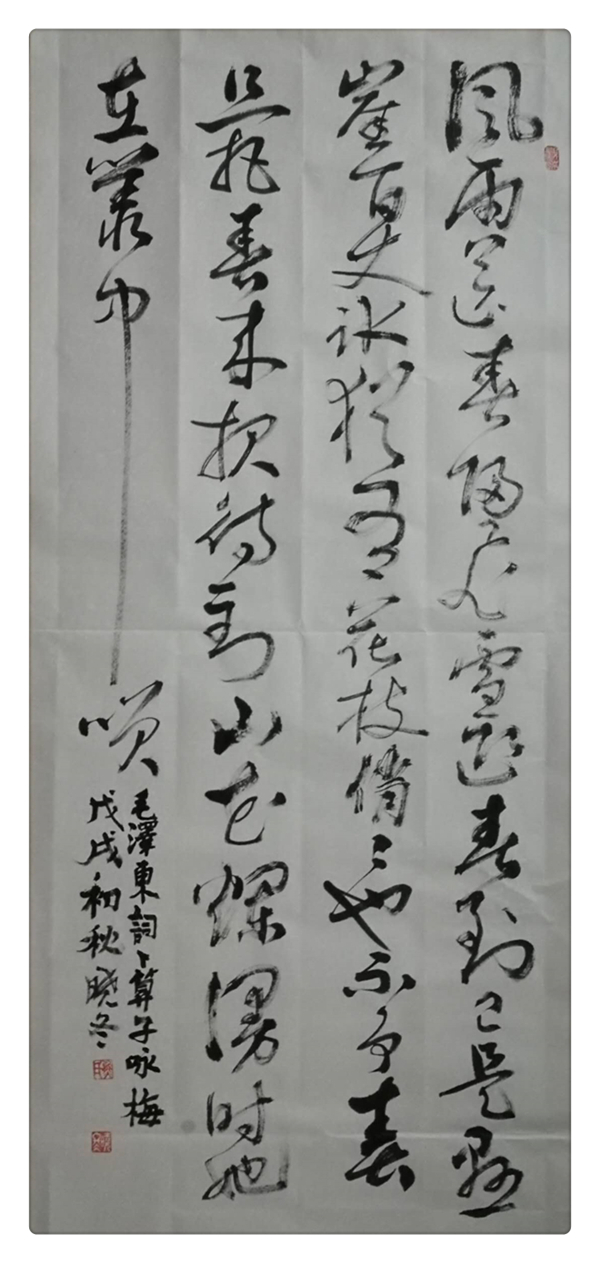 風雨送春歸飛雪迎春到已是懸
崖百丈冰猶有花枝俏〻也不争春
只把春來报待到山花爛漫時她
在叢中咲
毛澤東詞卜算子咏梅
戊戌初秋晓冬